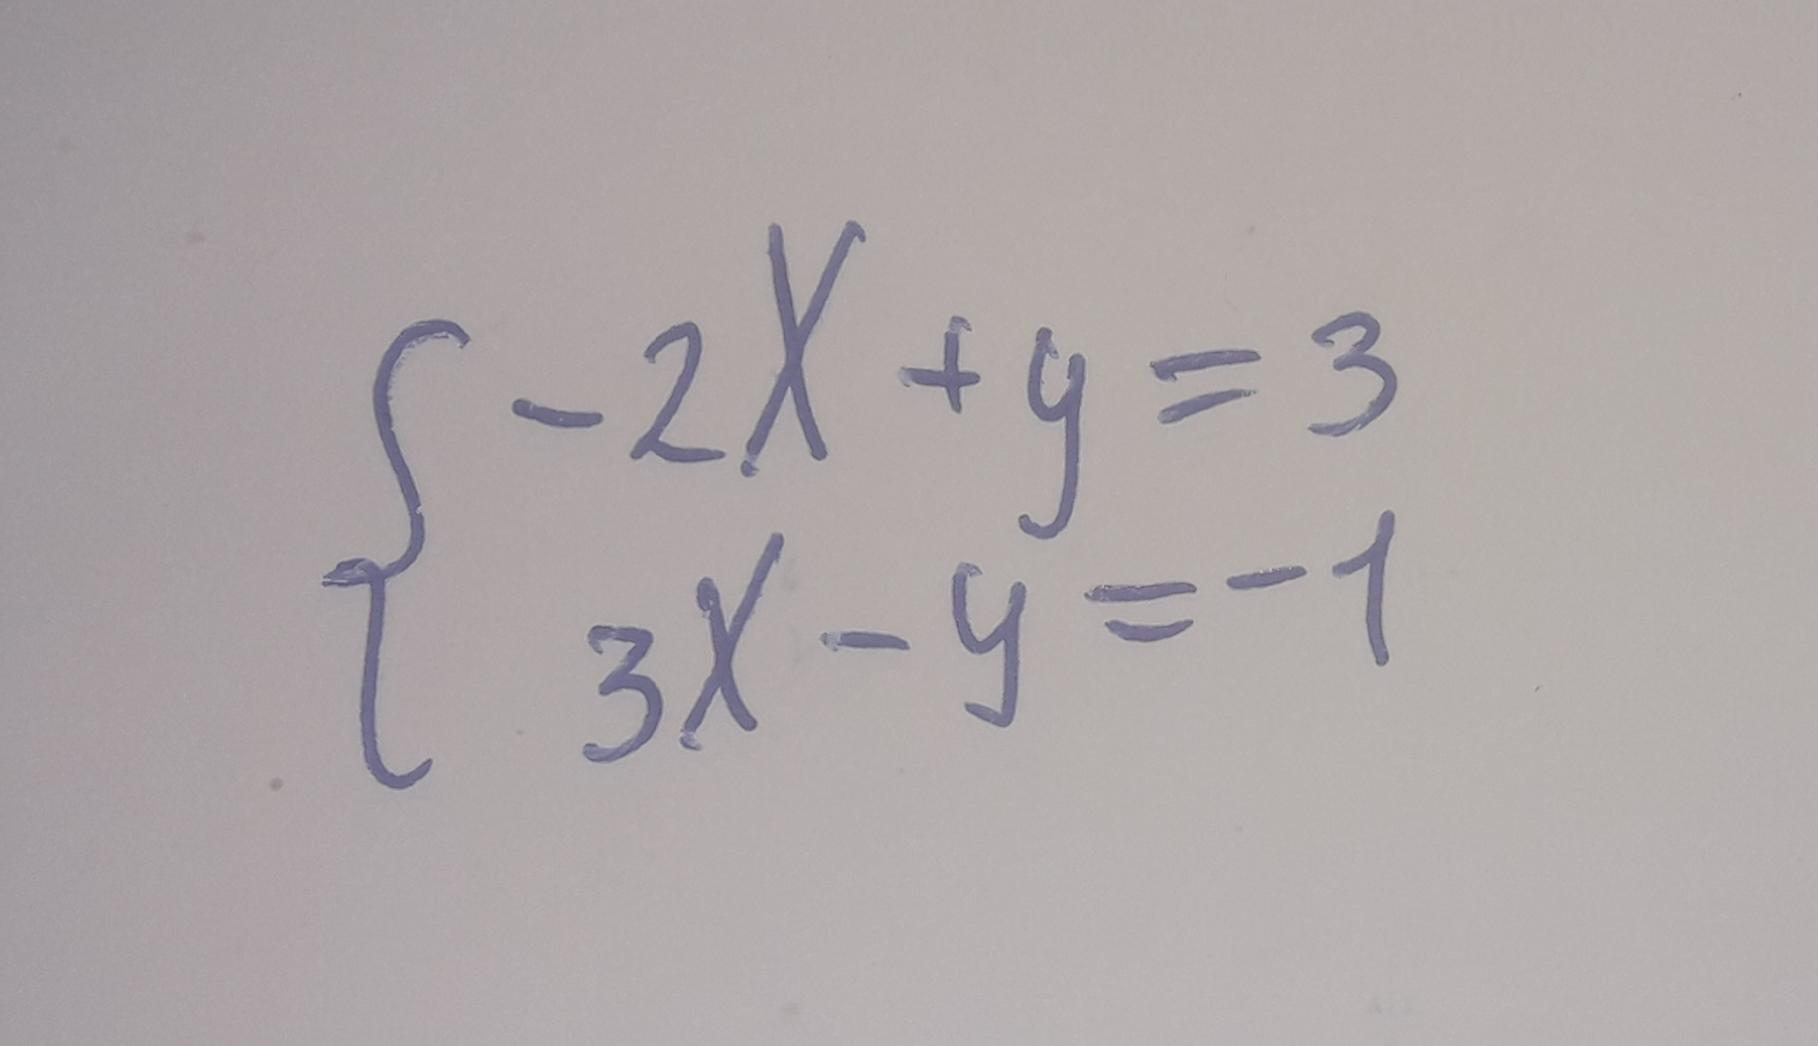 -2x + y = 3
3x - y = -1